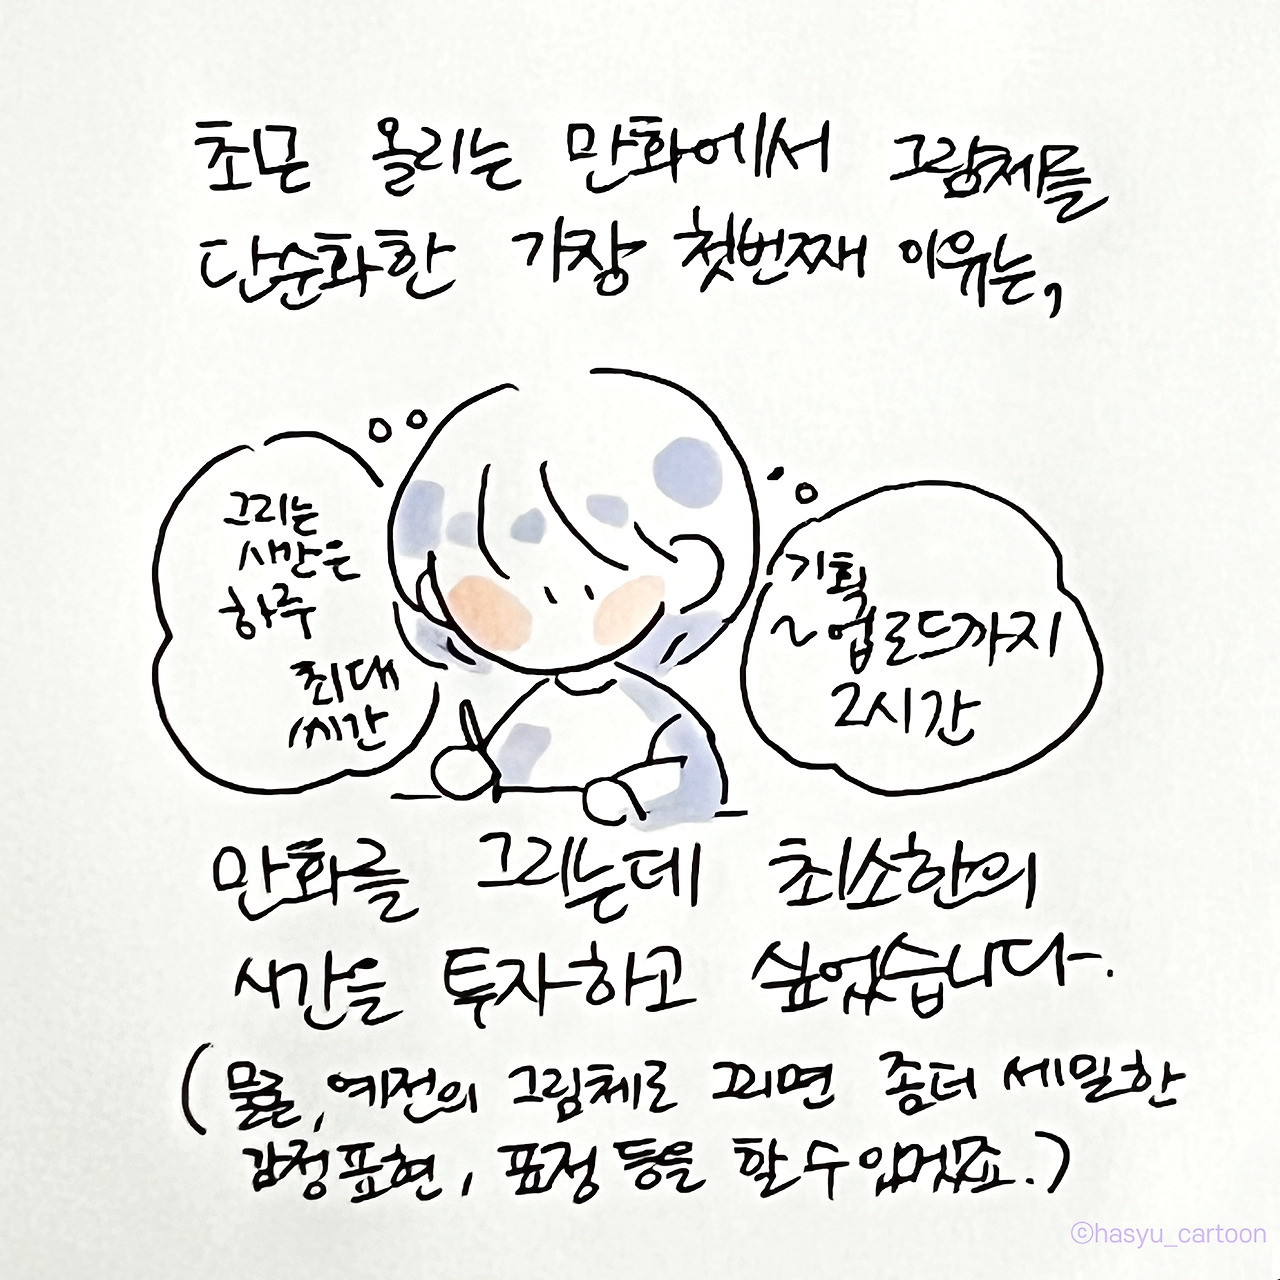 최근 올리는 만화에서 그림체를
단순화한 가장 첫번째 이유는,
그리는
시간은
하루
최대
1시간
기획
~업로드까지
2시간
만화를 그리는데 최소한의
시간을 투자하고 싶었습니다.
(물론, 예전의 그림체로 그리면 좀더 세밀한
감정표현, 표정 등을 할 수 있겠죠.)
©hasyu_cartoon